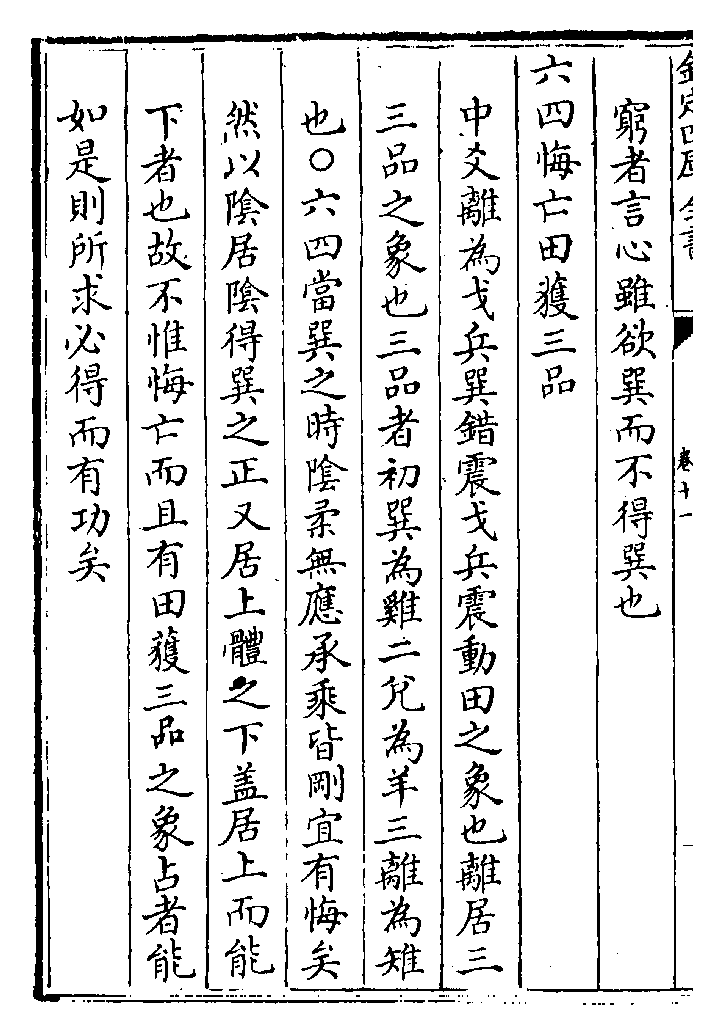 欽定四庫全書
卷十一
窮者言心雖欲巽而不得巽也
六四悔亡田獲三品
中爻離為戈兵巽錯震戈兵震動田之象也離居三
三品之象也三品者初巽為雞二兌為羊三離為雉
也○六四當巽之時陰柔無應承乘皆剛宜有悔矣
然以陰居陰得巽之正又居上體之下盖居上而能
下者也故不惟悔亡而且有田獲三品之象占者能
如是則所求必得而有功矣